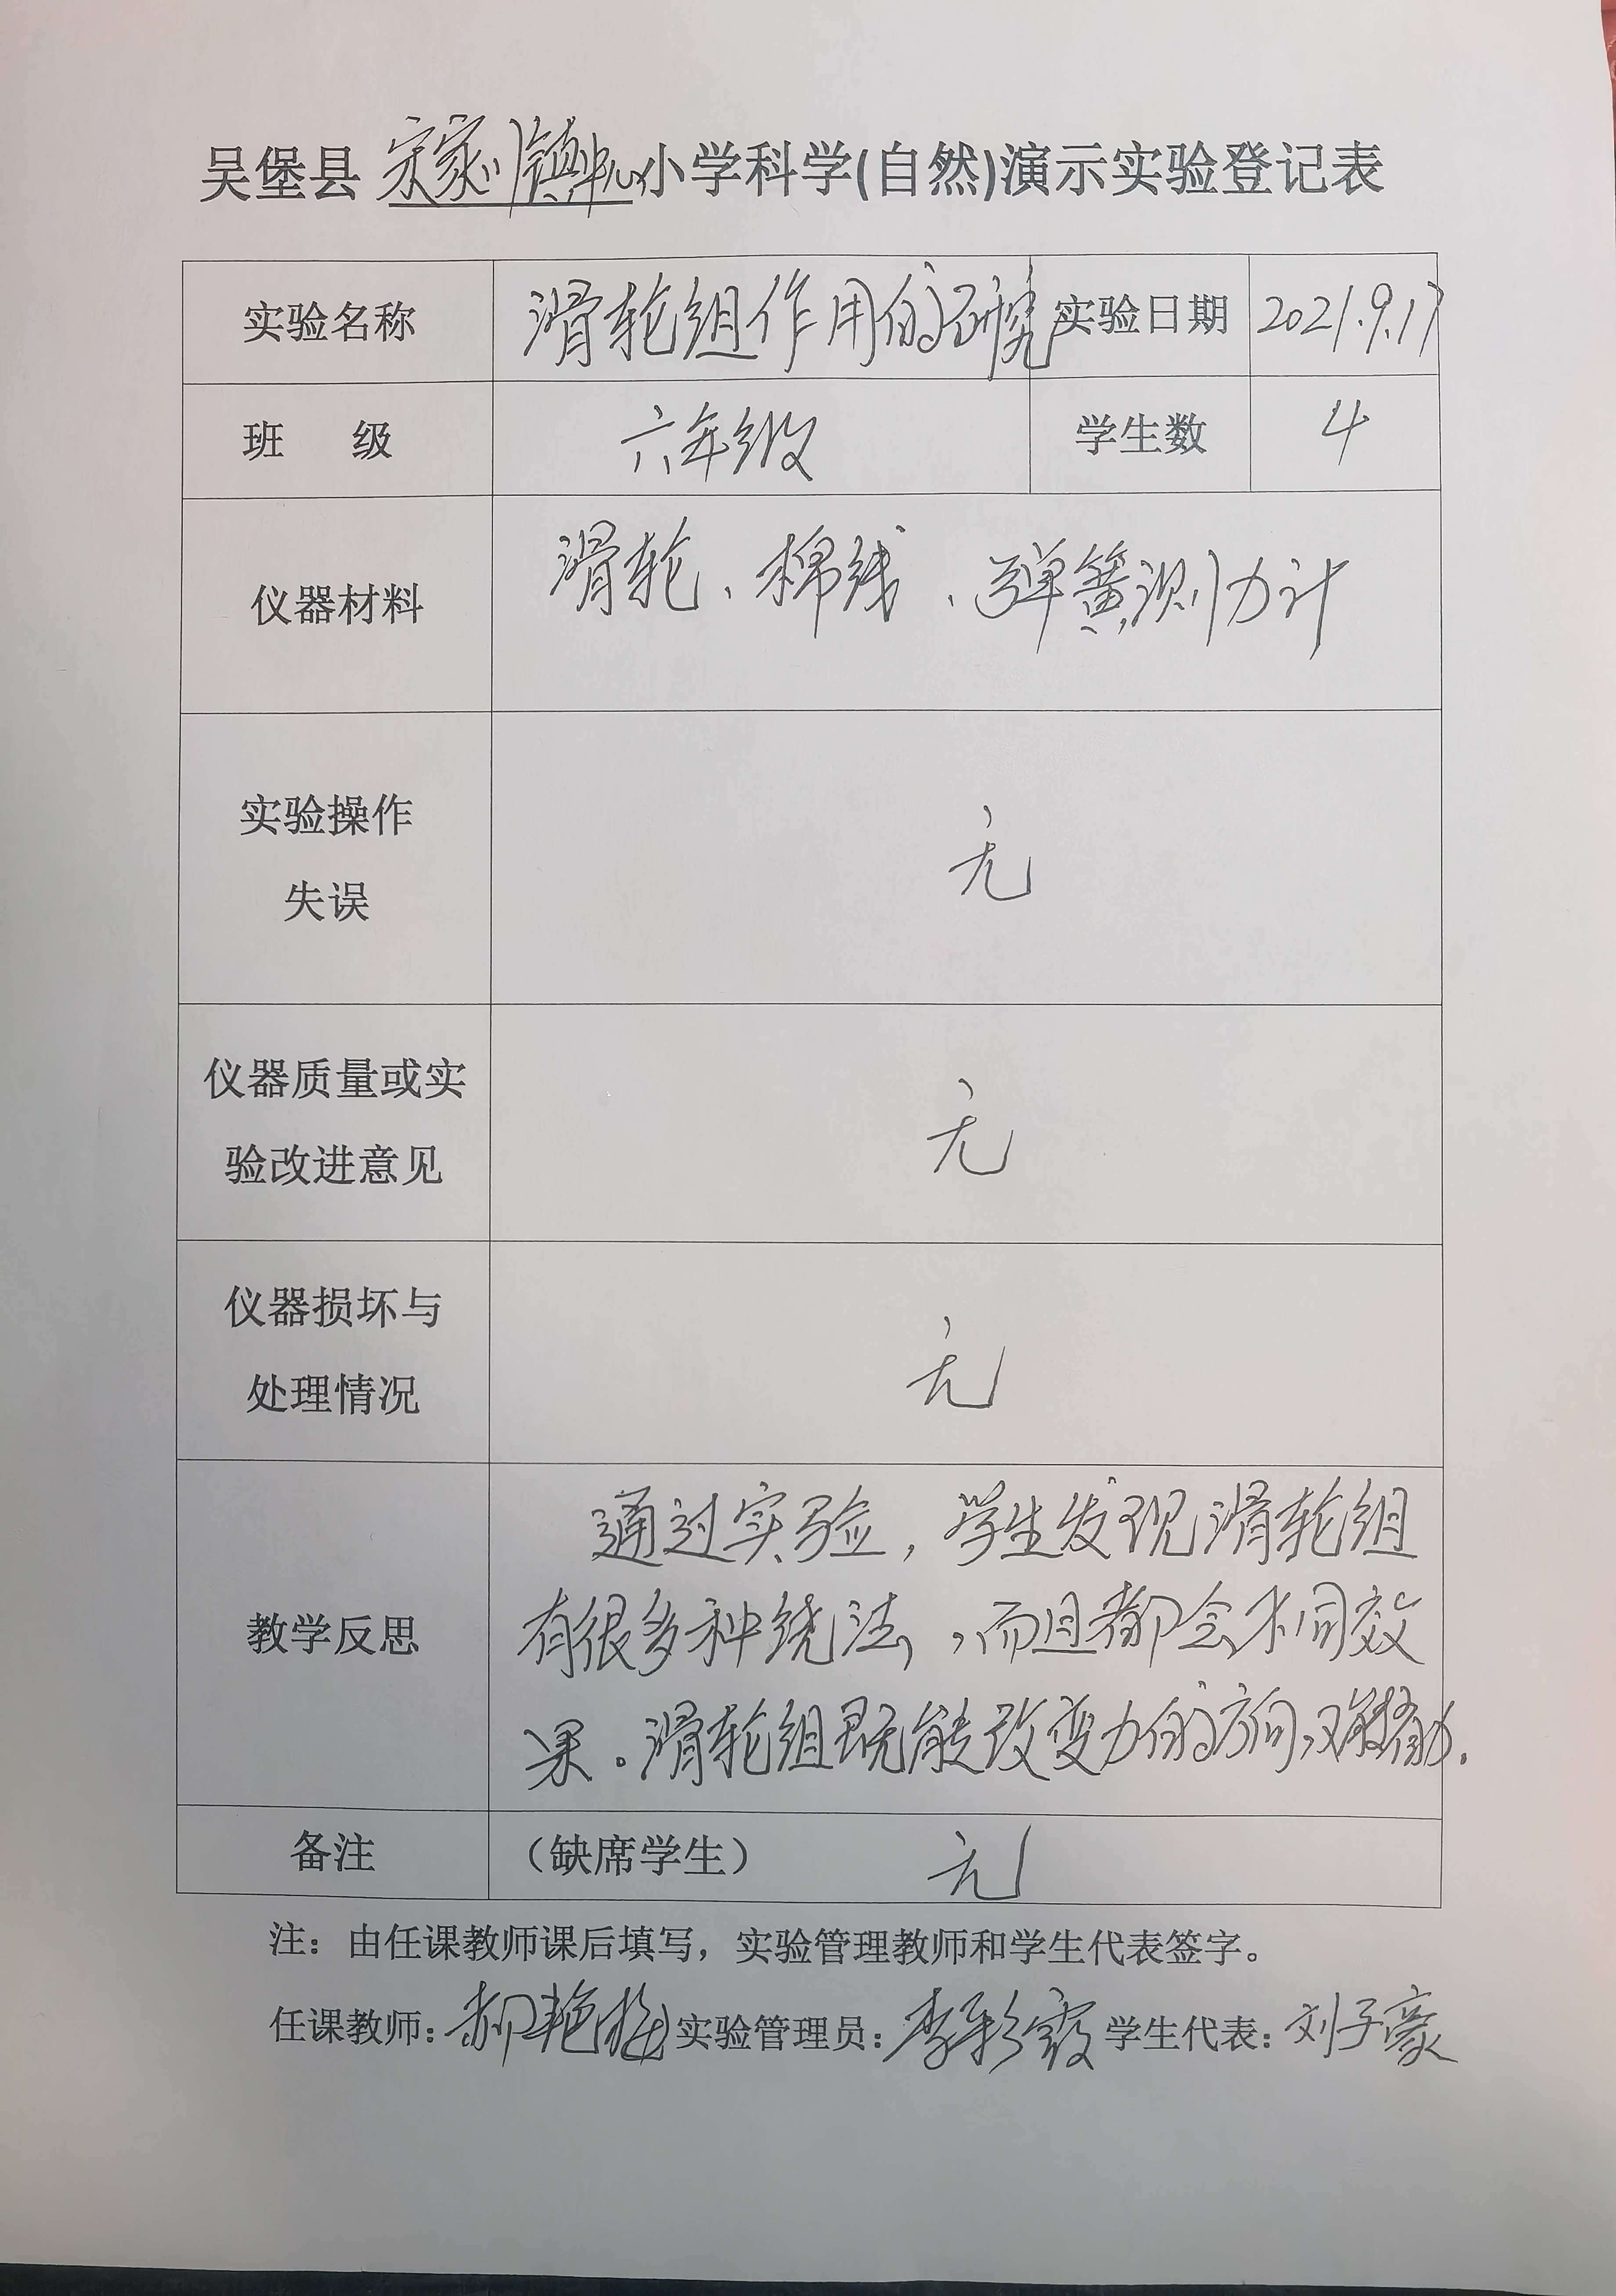 吴堡县宋家川镇中心小学科学(自然)演示实验登记表
实验名称 滑轮组作用的研究 实验日期 2021.9.17
班 级 六年级 学生数 4
仪器材料 滑轮、棉线、弹簧测力计
实验操作
失误
无
仪器质量或实
验改进意见
无
仪器损坏与
处理情况
无
教学反思
通过实验,学生发现滑轮组
有很多种绕法,而且都会不同效
果。滑轮组既能改变力的方向,又能省力.
备注 （缺席学生） 无
注：由任课教师课后填写，实验管理教师和学生代表签字。
任课教师：郝艳梅 实验管理员：李彩霞 学生代表：刘子豪